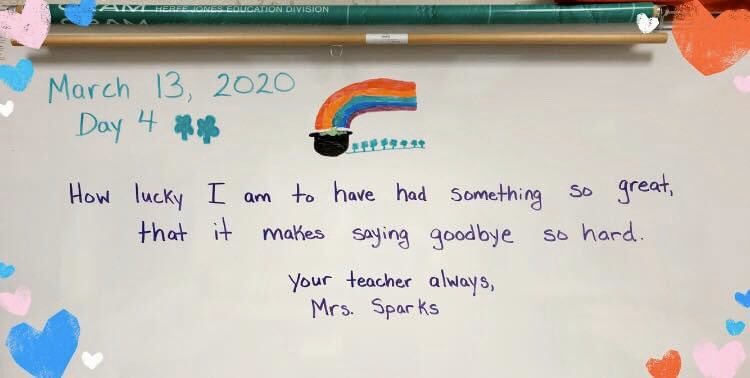 HERFF JONES EDUCATION DIVISION
March 13, 2020
Day 4
How lucky I am to have had something so great,
that it makes saying goodbye so hard.
Your teacher always,
Mrs. Sparks